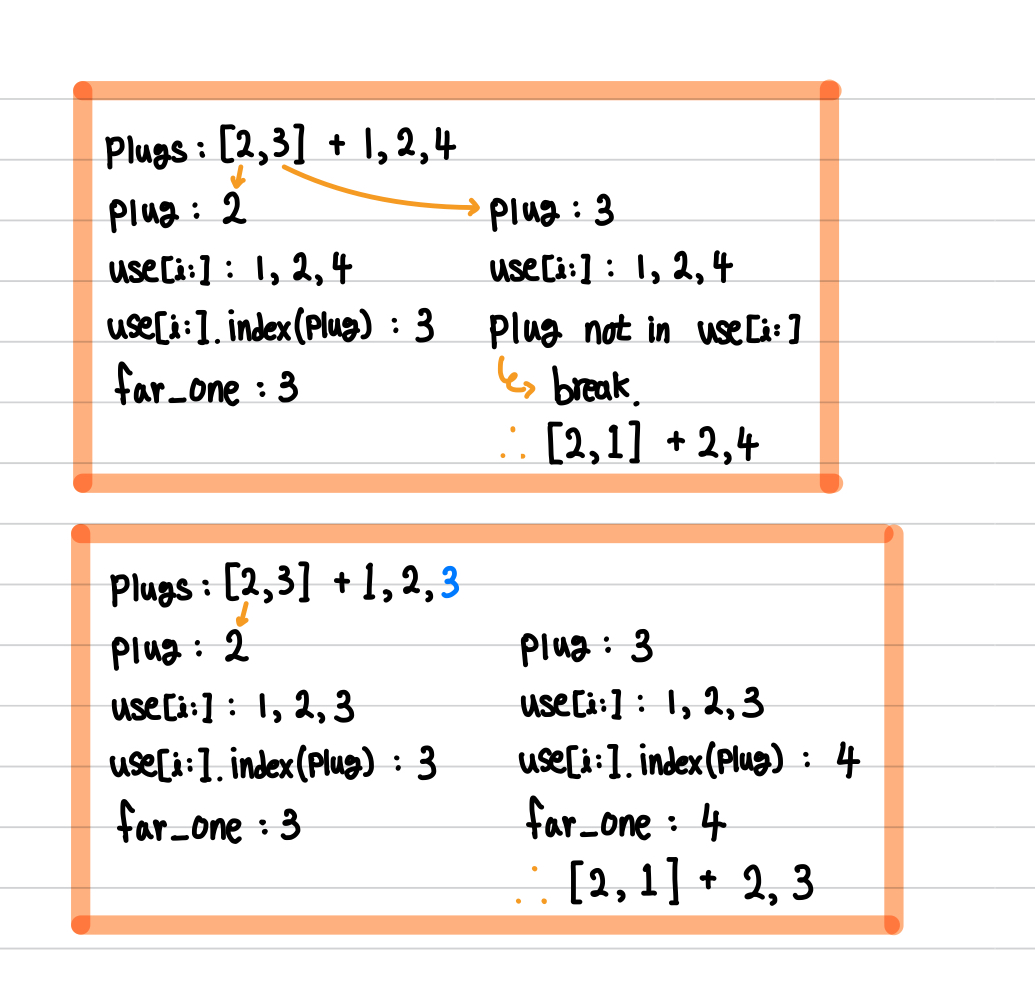 plugs : [2,3] + 1,2,4
plug : 2
use[i:] : 1, 2, 4
use[i:]. index(plug) : 3
far_one : 3
plug : 3
use[i:] : 1, 2, 4
plug not in use[i:]
break.
∴ [2,1] + 2,4
plugs : [2,3] + 1, 2, 3
plug : 2
use[i:] : 1, 2, 3
use[i:]. index(plug) : 3
far_one : 3
plug : 3
use[i:] : 1, 2, 3
use[i:]. index(plug) : 4
far_one : 4
∴ [2, 1] + 2, 3